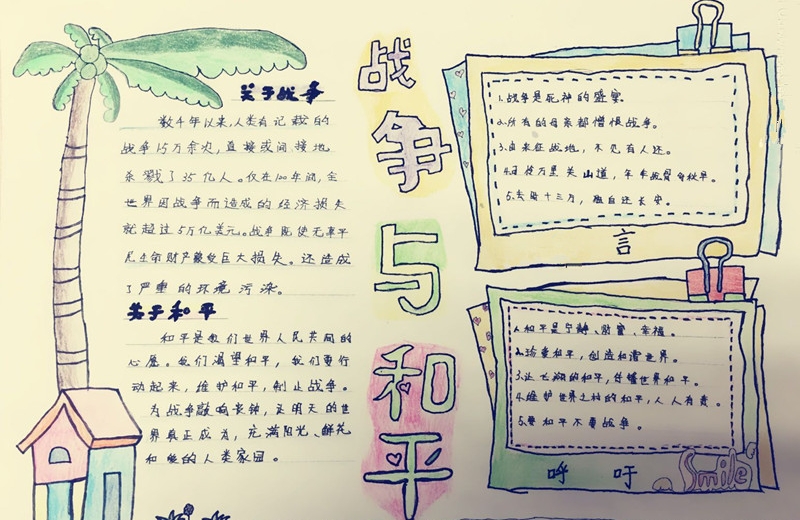 关于战争
数千年以来,人类有记载的
战争15万余次,直接或间接地
杀戮了35亿人。仅在100年间,全
世界因战争而造成的经济损失
就超过5万亿美元。战争既使无辜平
民生命财产蒙受巨大损失。还造成
了严重的环境污染。
关于和平
和平是我们世界人民共同的
心愿。我们渴望和平,我们要行
动起来,维护和平,制止战争。
为战争敲响丧钟,让明天的世
界真正成为,充满阳光、鲜花
和爱的人类家园。
战争与和平
1.战争是死神的盛宴。
2.所有的母亲都憎恨战争。
3.由来征战地,不见有人还。
4.百拔万里关山道,年年战骨多秋草。
5.去时十三万,独自还长安。
言
1.和平是宁静、财富、幸福。
2.珍重和平,创造和谐世界。
3.让长湖的和平,传播世界和平。
4.维护世界之村的和平,人人有责。
5.要和平不要战争。
呼吁
Smile